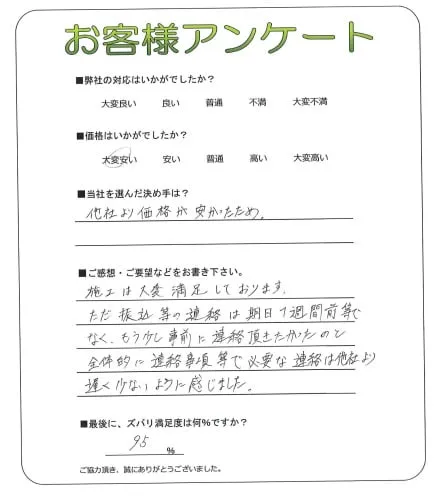 お客様アンケート
■弊社の対応はいかがでしたか？
大変良い 良い 普通 不満 大変不満
■価格はいかがでしたか？
大変安い 安い 普通 高い 大変高い
■当社を選んだ決め手は？
他社より価格が安かったため。
■ご感想・ご要望などをお書き下さい。
施工は大変満足しております。
ただ振込等の連絡は期日1週間前等で
なく、もう少し事前に連絡頂きたかったのと
全体的に連絡事項等で必要な連絡は他社より
遅く少ないように感じました。
■最後に、ズバリ満足度は何%ですか？
95 %
ご協力頂き、誠にありがとうございました。